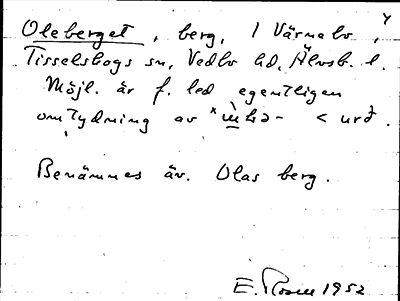 Oleberget, berg, i Värnebo,
Tisselskogs sn, Vedbo hd, Älvsb. l.
Möjl. är f. led egentligen
omtydning av < urð.
Benämnes äv. Olas berg.
E. Rosell 1952